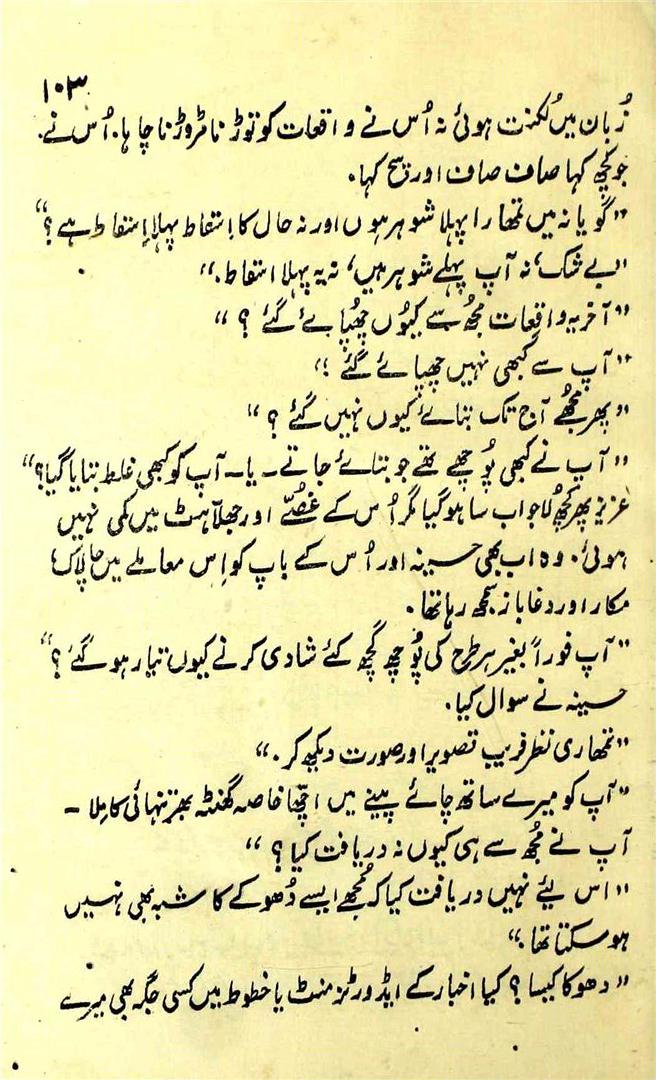 ۱۰۳
زُبان میں لُکنت ہوئی نہ اُس نے واقعات کو توڑنا مڑوڑنا چاہا۔ اُس نے
جو کچھ کہا صاف صاف اور سچ کہا۔
"گویا نہ میں تمھارا پہلا شوہر ہوں اور نہ حال کا اِسقاط پہلا اِسقاط ہے؟"
"بے شک، نہ آپ پہلے شوہر ہیں، نہ یہ پہلا اسقاط۔"
"آخر یہ واقعات مجھ سے کیوں چُھپائے گئے؟"
"آپ سے کبھی نہیں چھپائے گئے!"
"پھر مجھے آج تک بتائے کیوں نہیں گئے؟"
"آپ نے کبھی پُوچھے تھے جو بتائے جاتے۔ یا۔ آپ کو کبھی غلط بتایا گیا؟"
عزیز پھر کچھ لاجواب سا ہو گیا مگر اُس کے غصّے اور جھلّاہٹ میں کمی نہیں
ہوئی۔ وہ اب بھی حسینہ اور اُس کے باپ کو اِس معاملے میں چالاک،
مکار اور دغاباز سمجھ رہا تھا۔
"آپ فوراً بغیر ہر طرح کی پُوچھ گچھ کئے شادی کرنے کیوں تیار ہو گئے؟"
حسینہ نے سوال کیا۔
"تمھاری نظر فریب تصویر اور صورت دیکھ کر۔"
"آپ کو میرے ساتھ چائے پینے میں اچھا خاصہ گھنٹہ بھر تنہائی کا ملا۔
آپ نے مجھ سے ہی کیوں نہ دریافت کیا؟"
"اس لیے نہیں دریافت کیا کہ مجھے ایسے دُھوکے کا شبہ بھی نہیں
ہو سکتا تھا۔"
"دھوکا کیسا؟ کیا اخبار کے ایڈورٹزمنٹ یا خطوط میں کسی جگہ بھی میرے